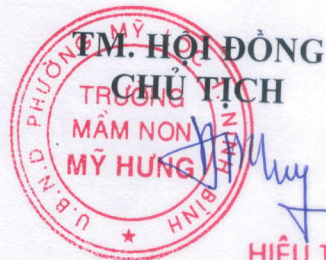 TM. HỘI ĐỒNG
CHỦ TỊCH
U.B.N.D PHƯỜNG MỸ
BÌNH
TRƯỜNG
MẦM NON
MỸ HƯNG
HIỆU T